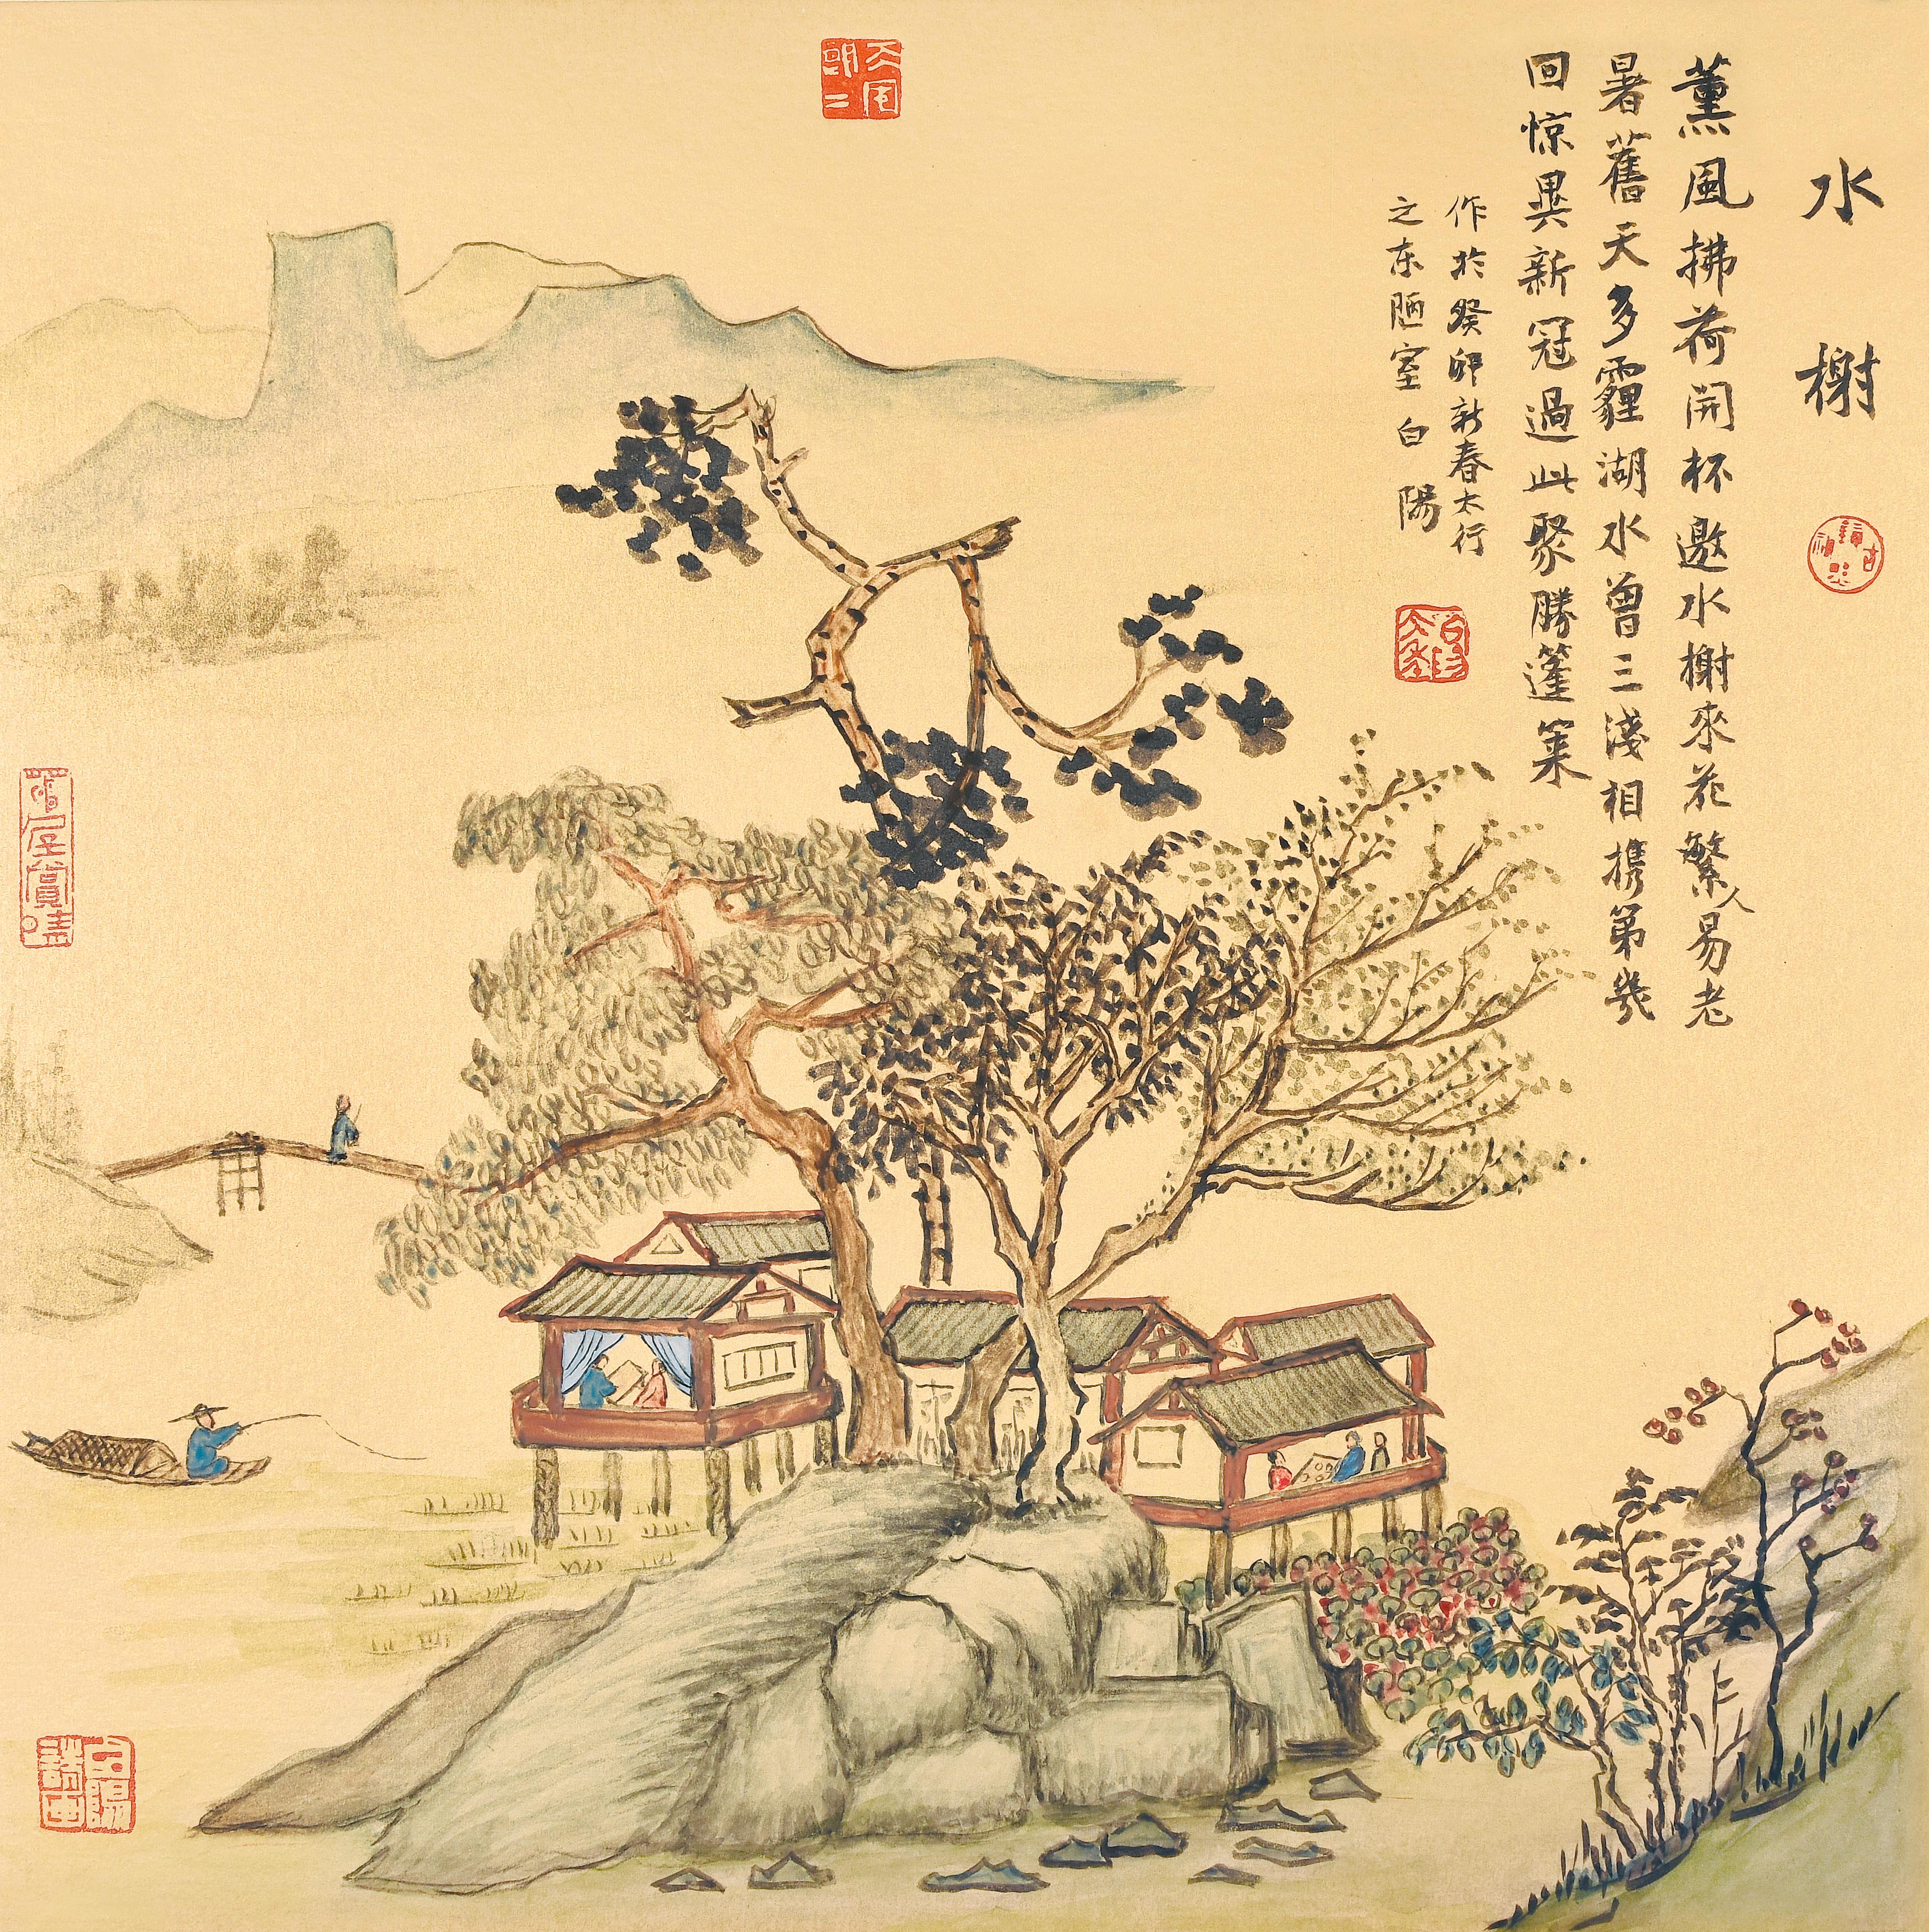 水榭
薰風拂荷開杯邀水榭來花繁人易老
暑舊天多霾湖水曾三淺相携第幾
回惊異新冠過此聚勝蓬莱
作於癸卯新春太行
之东陋室白陽
白陽
詩画